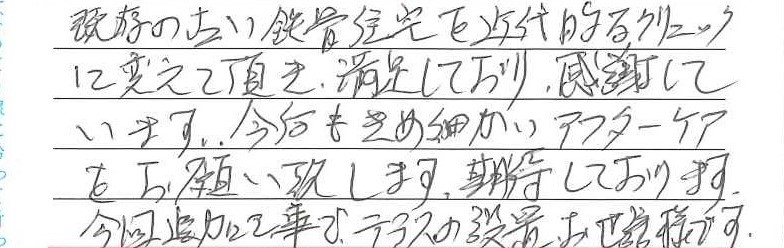 既存の古い鉄骨住宅を近代的なるクリニック
に変えて頂き、満足しており、感謝して
います。今后もきめ細かいアフターケア
をお願い致します。期待しております。
今回追加工事で、テラスの設置、お世話様です。